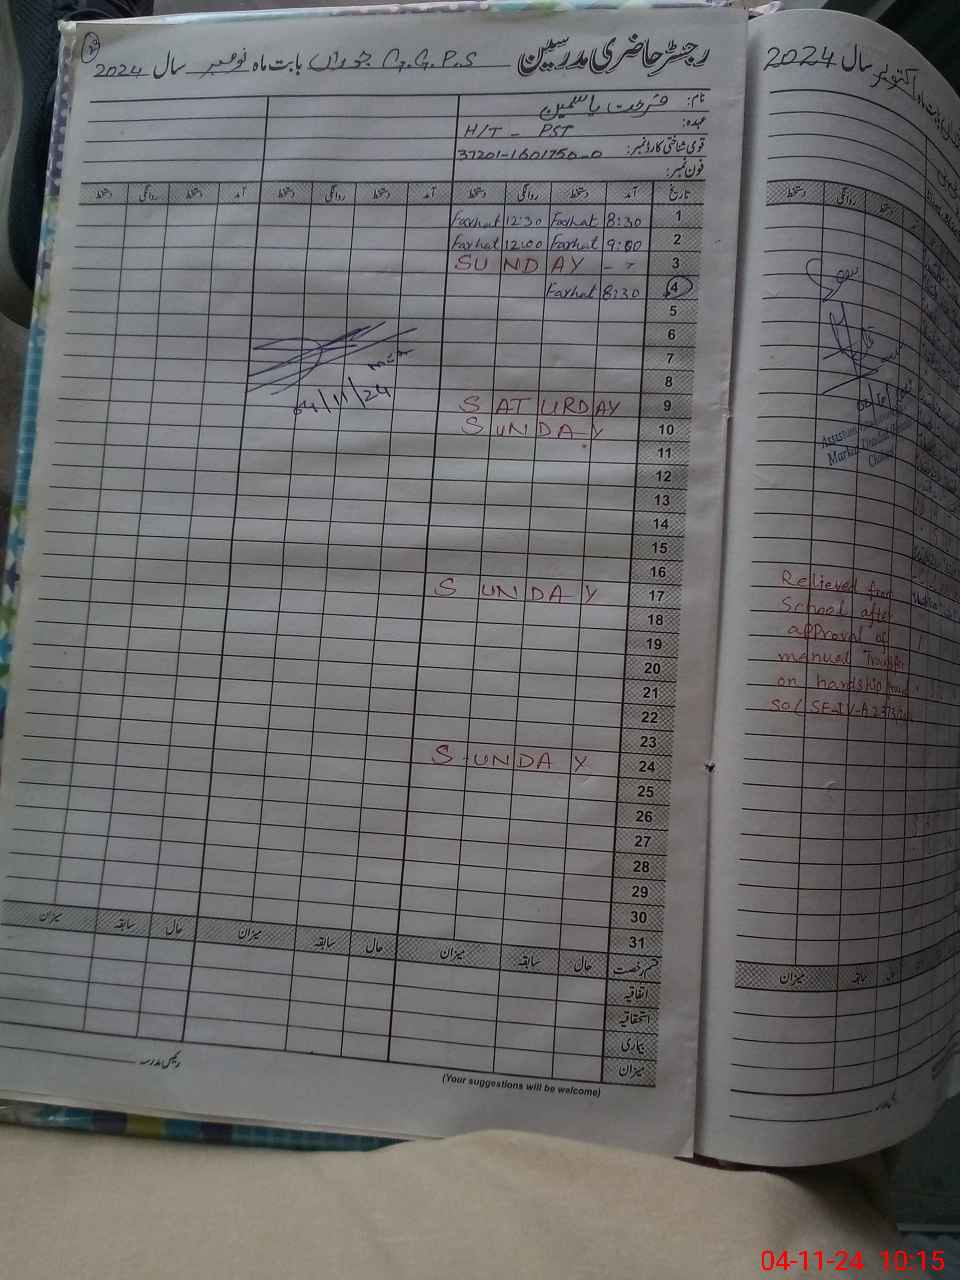 رجسٹر حاضری مدرسین G.G.P.S بابت ماہ نومبر سال 2024
نام: فرحت یاسمین
عہدہ: H/T - PST
قومی شناختی کارڈ نمبر: 37201-1601750-0
فون نمبر:
تاریخ آمد دستخط روانگی دستخط آمد دستخط روانگی دستخط دستخط روانگی دستخط
1 8:30 Farhat 12:30 Farhat
2 9:00 Farhat 12:00 Farhat
3 SUNDAY --
4 8:30 Farhat
5
6
7
8
04/11/24
9 SATURDAY
10 SUNDAY
11
12
13
14
15
16
17 SUNDAY
18
19
20
21
22
23
24 SUNDAY
25
26
27
28
29
30
31
قسم رخصت حال سابقہ میزان حال سابقہ میزان حال سابقہ میزان
اتفاقیہ
استحقاقیہ
بیماری
میزان
رئیس مدرسہ
(Your suggestions will be welcome)
اکتوبر سال 2024
دستخط روانگی دستخط
Relieved from
School after
approval of
manual Transfer
on hardship
SO(SE-IV-A
سابقہ میزان
04-11-24 10:15